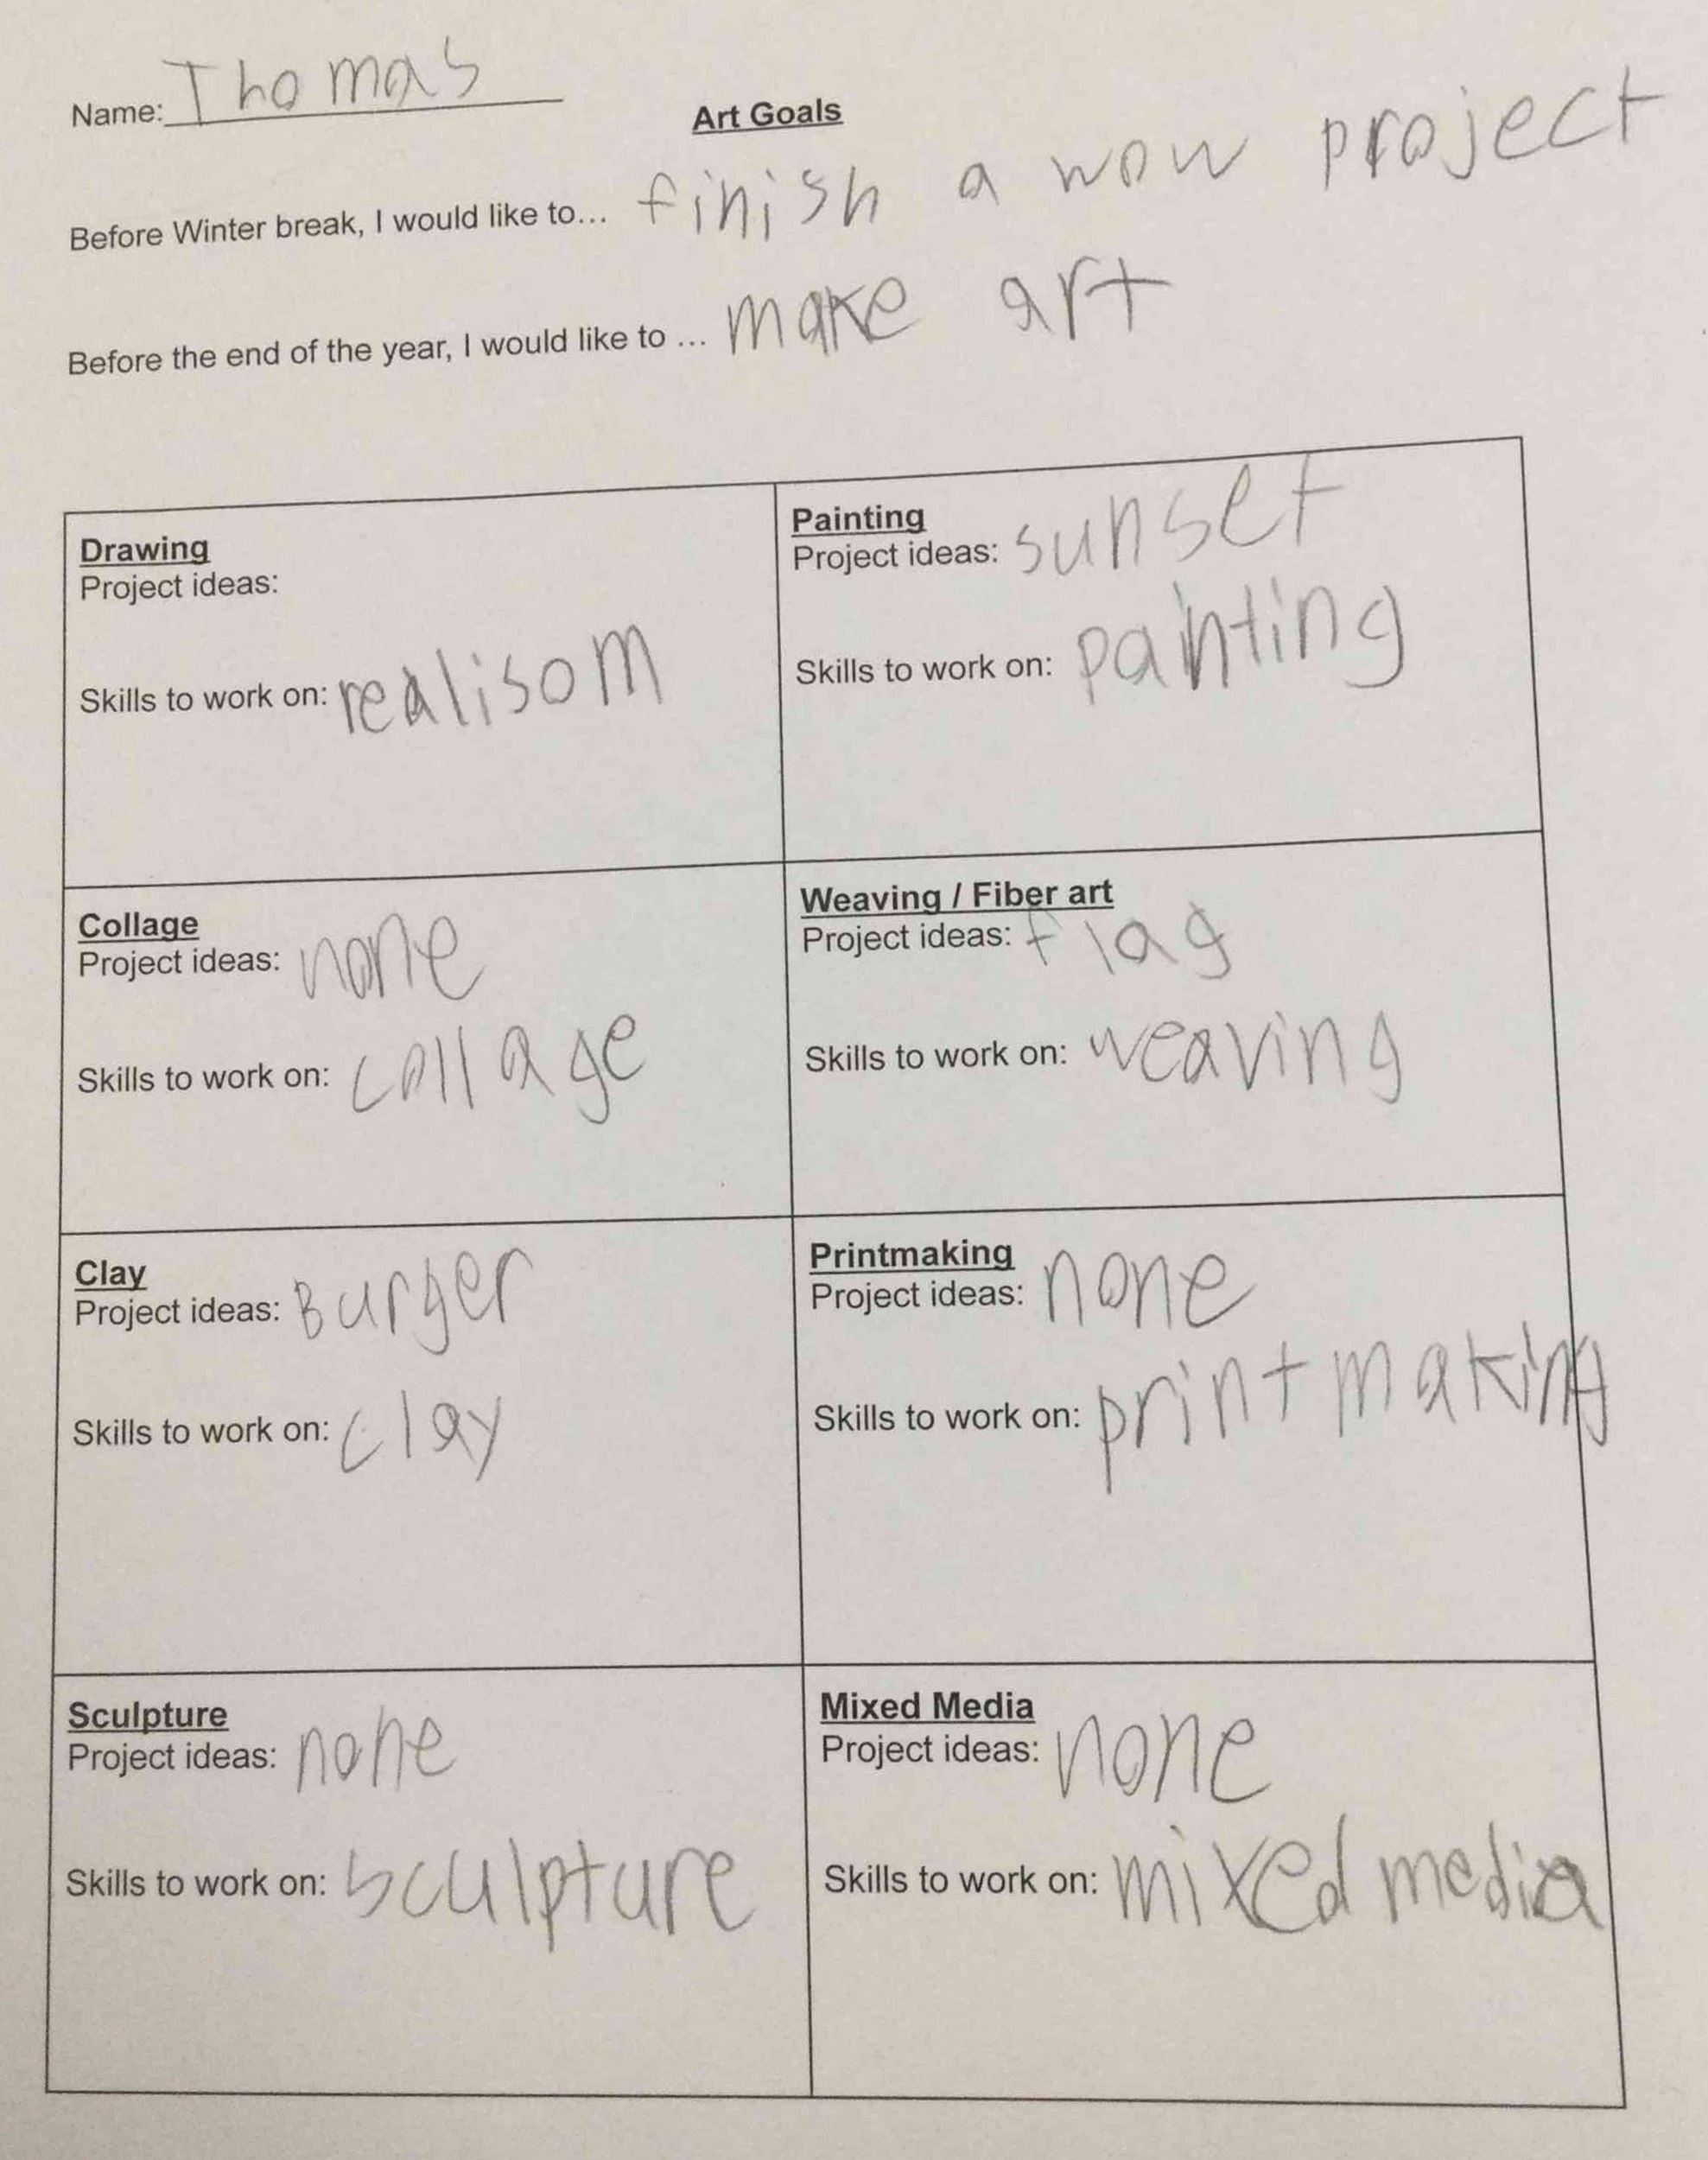 Name: Thomas
Art Goals
Before Winter break, I would like to... finish a wow project
Before the end of the year, I would like to ... make art
Drawing
Project ideas:
Skills to work on: realisom
Painting
Project ideas: sunset
Skills to work on: painting
Collage
Project ideas: none
Skills to work on: collage
Weaving / Fiber art
Project ideas: flag
Skills to work on: weaving
Clay
Project ideas: Burger
Skills to work on: clay
Printmaking
Project ideas: none
Skills to work on: printmaking
Sculpture
Project ideas: none
Skills to work on: sculpture
Mixed Media
Project ideas: none
Skills to work on: mixed media